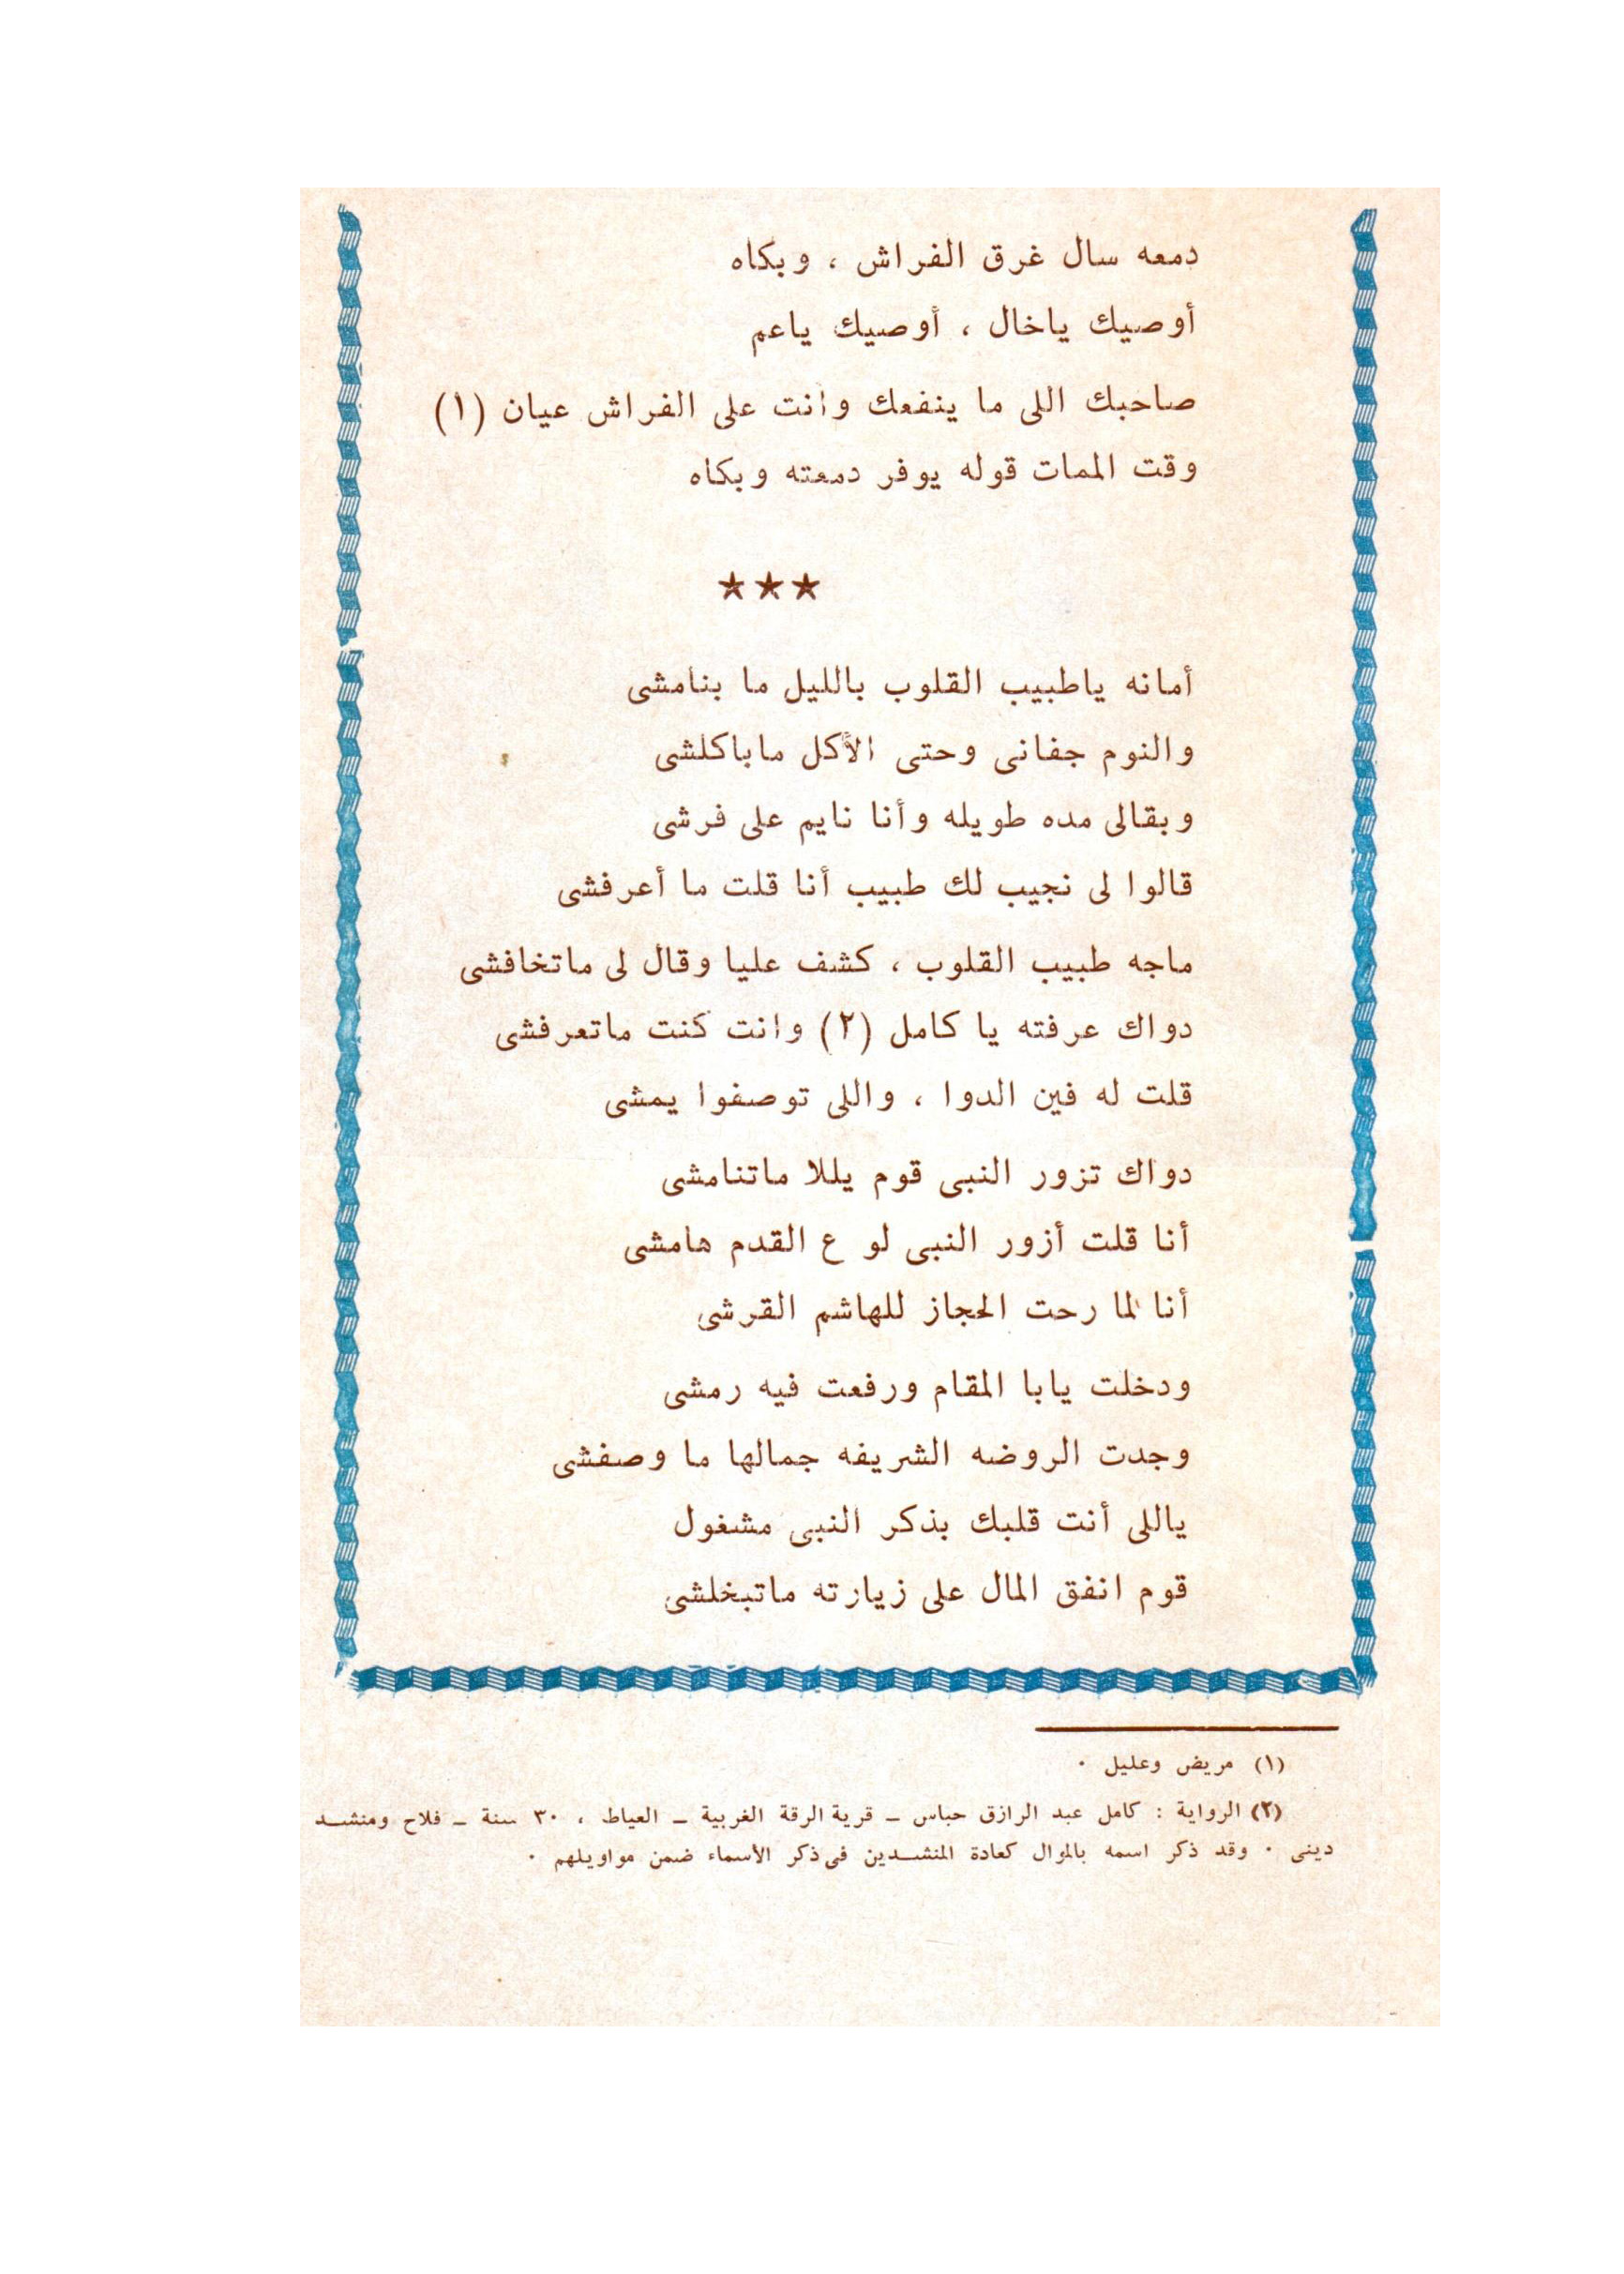 دمعه سال غرق الفراش ، وبكاه
أوصيك ياخال ، أوصيك ياعم
صاحبك اللى ما ينفعك وانت على الفراش عيان (١)
وقت الممات قوله يوفر دمعته وبكاه
★★★
أمانه ياطبيب القلوب بالليل ما بنامشى
والنوم جفانى وحتى الأكل ماباكلشى
وبقالى مده طويله وأنا نايم على فرشى
قالوا لى نجيب لك طبيب أنا قلت ما أعرفشى
ماجه طبيب القلوب ، كشف عليا وقال لى ماتخافشى
دواك عرفته يا كامل (٢) وانت كنت ماتعرفشى
قلت له فين الدوا ، واللى توصفوا يمشى
دواك تزور النبى قوم يللا ماتنامشى
أنا قلت أزور النبى لو ع القدم هامشى
أنا لما رحت الحجاز للهاشم القرشى
ودخلت يابا المقام ورفعت فيه رمشى
وجدت الروضه الشريفه جمالها ما وصفشى
ياللى أنت قلبك بذكر النبى مشغول
قوم انفق المال على زيارته ماتبخلشى
(١) مريض وعليل ٠
(٢) الرواية : كامل عبد الرازق حباس – قرية الرقة الغربية – العياط ، ٣٠ سنة – فلاح ومنشد
دينى ٠ وقد ذكر اسمه بالموال كعادة المنشدين فى ذكر الأسماء ضمن مواويلهم ٠